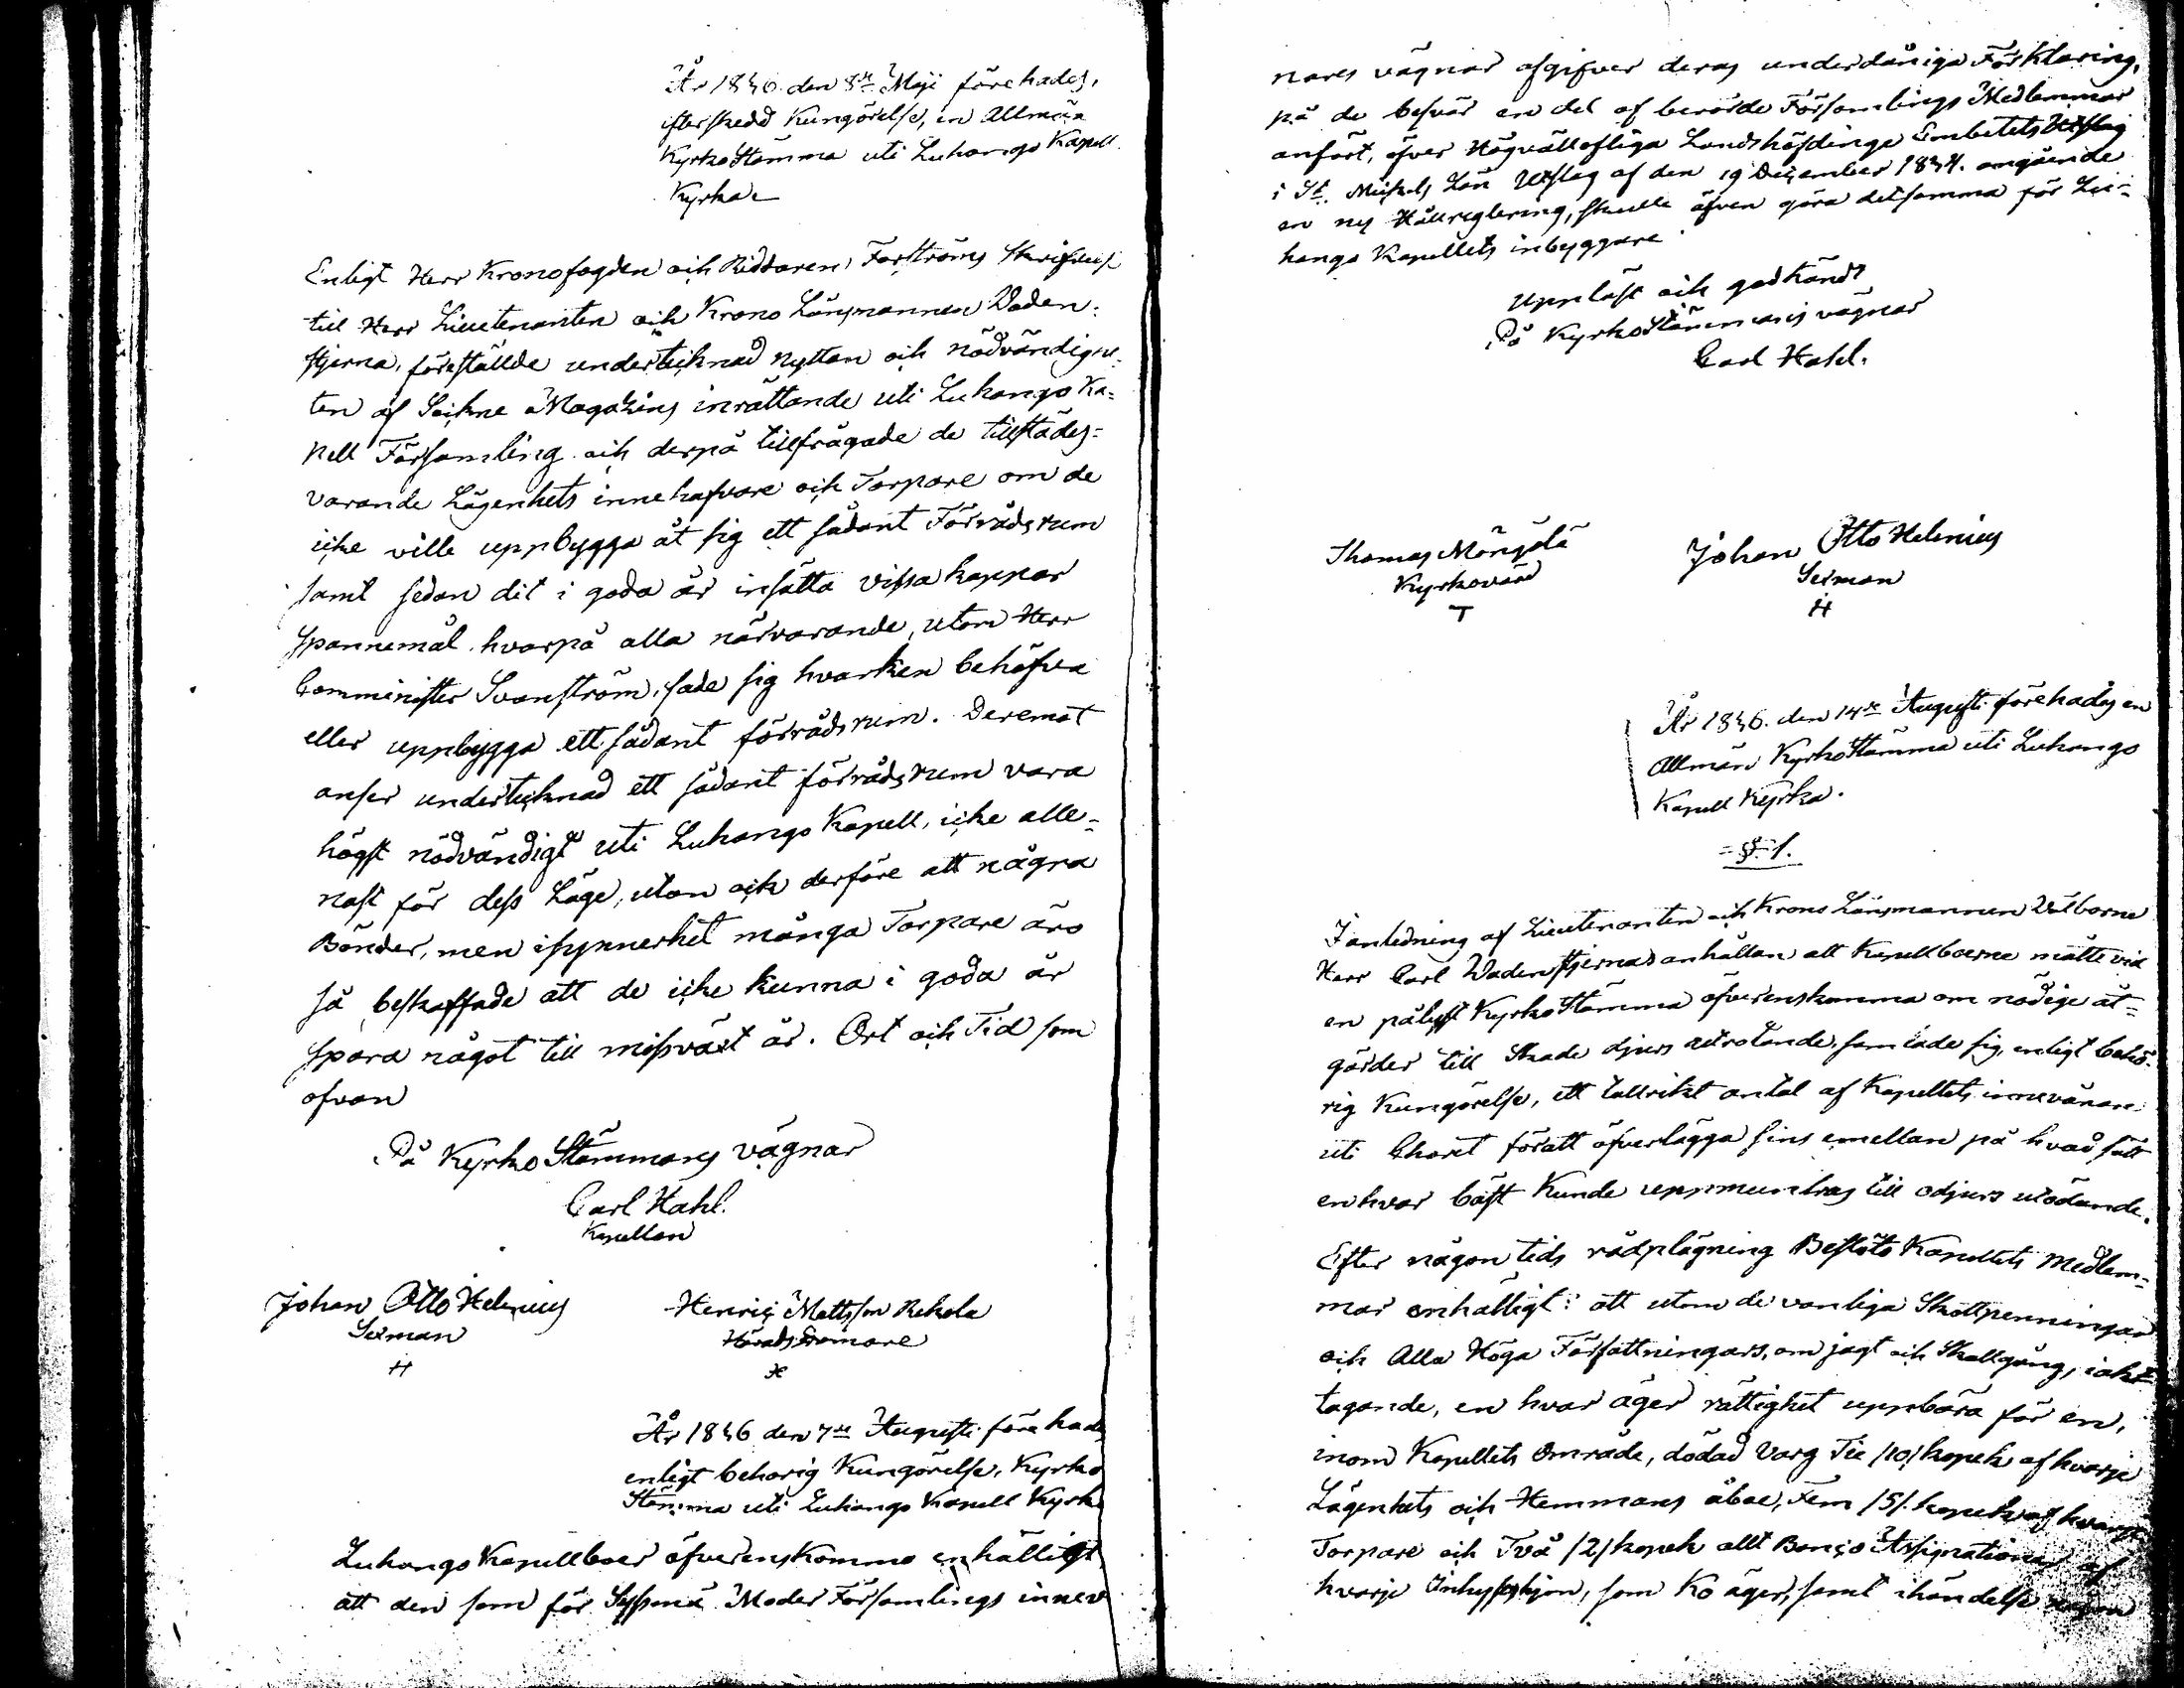 År 1836. den 8de Maji förehades,
efterskedd Kungörelse, en Allmän
KyrkoStämma uti Luhango Kapell
Kyrka
Enligt Herr Kronofogden och Riddaren Forströms Skrifvelse
till Herr Lieutenanten och Krono Länsmannen Waden-
stjerna, föreställde undertecknad nyttan och nödvändighe-
ten af Sockne Magazins inrättande uti Luhango Ka-
pell Församling och derpå tillfrågade de tillstädes-
varande Lägenhets innehafvare och Torpare om de
icke ville uppbygga åt sig ett sådant Förrådsrum
samt sedan dit i goda år insätta vissa kappar
Spannemål. hvarpå alla närvarande, utom Herr
Comminister Svanström, sade sig hvarken behöfva
eller uppbygga ett sådant förrådsrum. Deremot
anser undertecknad ett sådant förrådsrum vara
högst nödvändigt uti Luhango Kapell, icke alle-
nast för dess Läge, utan ock derföre att några
Bönder, men isynnerhet många Torpare äro
så beskaffade att de icke kunna i goda år
spara något till missväxt år. Ort och Tid som
ofvan
På KyrkoStämmans vägnar
Carl Hahl.
Kapellan
Johan Otto Helenius
Sexman
H
Henric Mattsson Rekola
Häradsdomare
År 1836 den 7de Augusti förehades
enligt behörig Kungörelse, Kyrko
Stämma uti Luhango Kapell Kyrka
Luhango Kapellboer öfverenskommo enhälligt
att den som för Sysmä Moder Församlings innev
nares vägnar afgifver deras underdåniga Förklaring,
på de besvär en del af berörde Församlings Medlemmar
anfört, öfver Högvällofliga Landshöfdinge Embetets Utslag
i St. Michels Län Utslag af den 19 December 1834. angående
en ny Hållreglering, skulle äfven göra detsamma för Lu-
hango Kapellets inbyggare
Uppläst och godkändt
På KyrkoStämmans vägnar
Carl Hahl.
Thomas Mörgölä
Kyrkovärd
T
Johan Otto Helenius
Sexman
H
År 1836. den 14de Augusti förehades en
Allmän KyrkoStämma uti Luhango
Kapell Kyrka.
§ 1.
I anledning af Lieutenanten och Krono Länsmannen Välborne
Herr Carl Wadenstjernas anhållan att Kapellboerne måtte vid
en pålyst KyrkoStämma öfverenskomma om nödige åt-
gärder till Skade djurs utrotande, samlade sig, enligt behö-
rig Kungörelse, ett talrikt antal af Kapellets innevånare
uti Choret föratt öfverlägga sins emellan på hvad sätt
enhvar bäst Kunde uppmuntras till odjurs utödande.
Efter någon tids rådplägning Beslöto Kapellets Medlem-
mar enhälligt: att utom de vanliga Skottpenningar
och Alla Höga Författningars, om jagt och Skallgång, iakt-
tagande, en hvar äger rättighet uppbära för en,
inom Kapellets Område, dödad Varg Tie /10/ kopek af hvarje
Lägenhets och Hemmans åboe, Fem /5/ kopek af hvarje
Torpare och Två /2/ kopek allt Banco Assignationer af
hvarje Inhyseshjon, som Ko äger, samt ihändelse någon